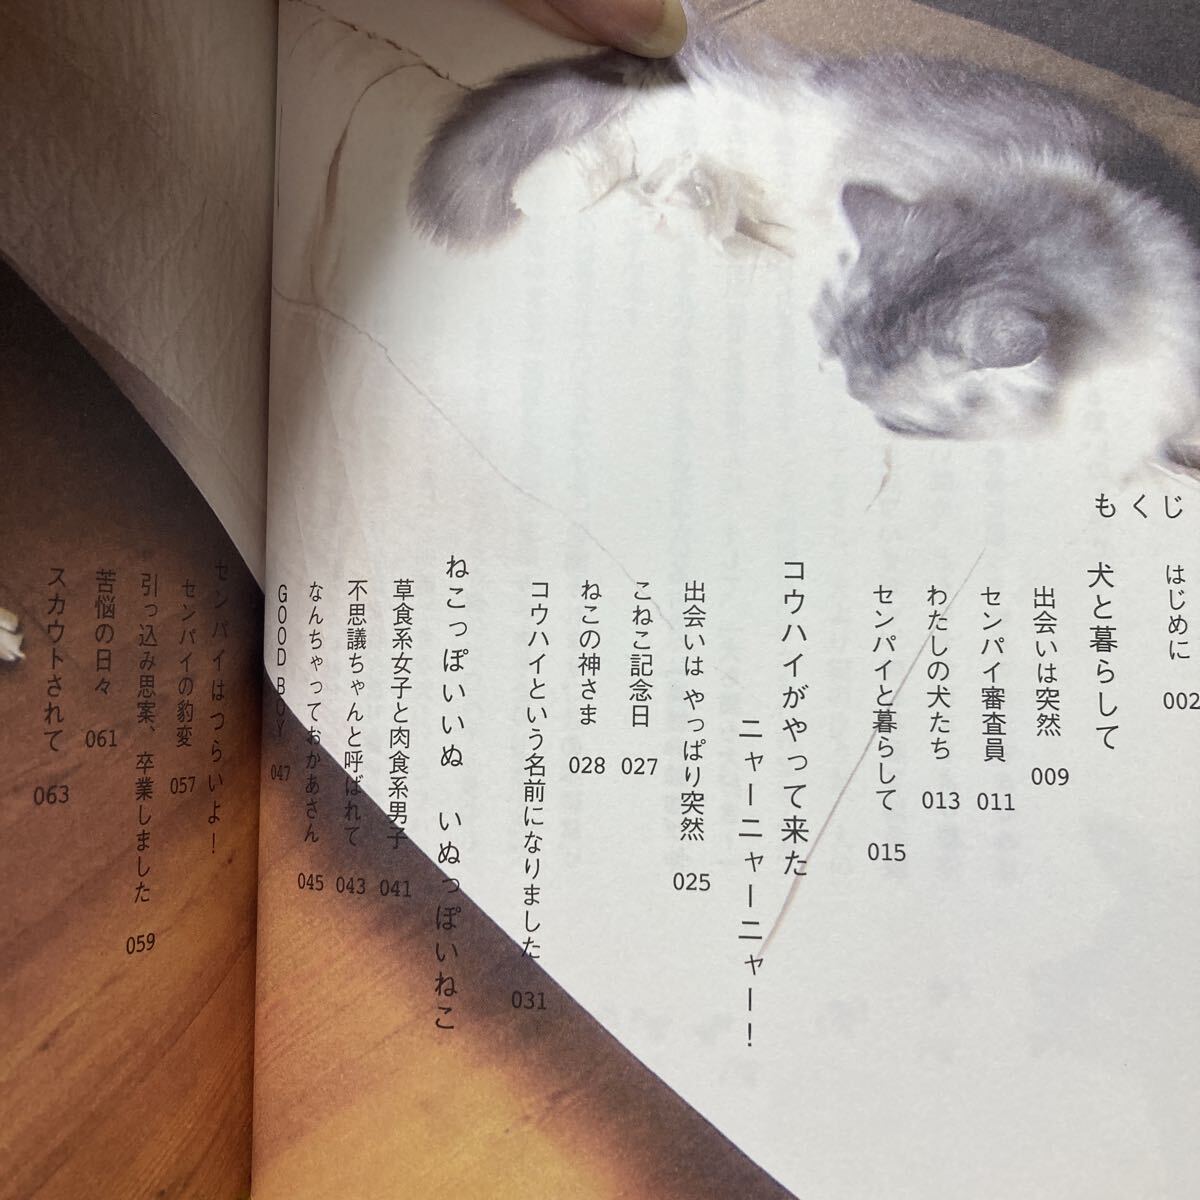 もくじ
はじめに 002
犬と暮らして
出会いは突然 009
センパイ審査員 011
わたしの犬たち 013
センパイと暮らして 015
コウハイがやって来た
ニャーニャーニャー!
出会いは やっぱり突然 025
こねこ記念日 027
ねこの神さま 028
コウハイという名前になりました 031
ねこっぽいいぬ いぬっぽいねこ
草食系女子と肉食系男子 041
不思議ちゃんと呼ばれて 043
なんちゃっておかあさん 045
GOOD BOY 047
センパイはつらいよ!
センパイの豹変 057
引っ込み思案、卒業しました 059
苦悩の日々 061
スカウトされて 063